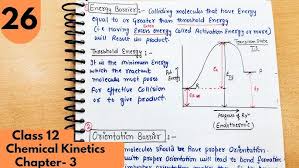 26
Class 12
Chemical Kinetics
Chapter- 3
Energy Barrier:- Colliding molecules that have Energy
equal to or Greater than threshold Energy
(i.e. Having Extra energy called Activation Energy or more)
will Result in product.
Threshold Energy:-
It is the minimum Energy
which the reactant
molecules must posses
For effective Collision
or to give product
Progress of Rxn
(Endothermic)
Orientation Barrier:-
molecules should have proper Orientation
with proper Orientation will lead to bond formation